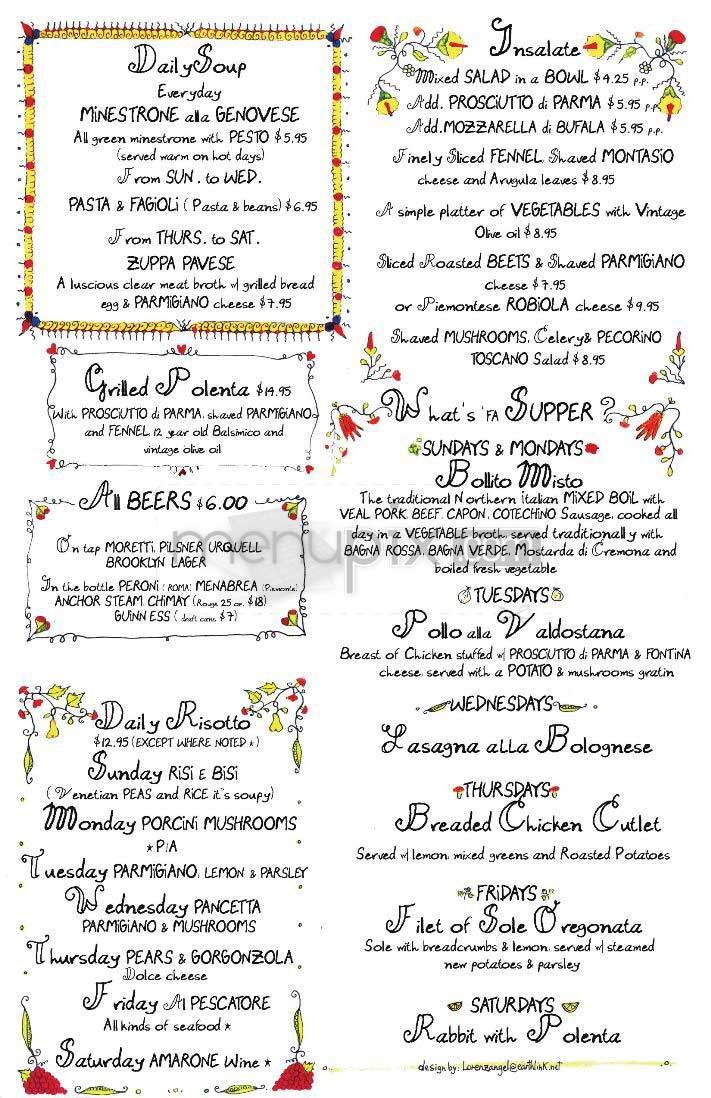 Daily Soup
Everyday
MINESTRONE alla GENOVESE
All green minestrone with PESTO $5.95
(served warm on hot days)
From SUN. to WED.
PASTA & FAGIOLI ( Pasta & beans) $6.95
From THURS. to SAT.
ZUPPA PAVESE
A luscious clear meat broth w/ grilled bread
egg & PARMIGIANO cheese $7.95
Grilled Polenta $14.95
With PROSCIUTTO di PARMA, shaved PARMIGIANO
and FENNEL, 12 year old Balsimico and
vintage olive oil
All BEERS $6.00
On tap MORETTI, PILSNER URQUELL
BROOKLYN LAGER
In the bottle PERONI ( ROMA) MENABREA (Piemonte)
ANCHOR STEAM, CHIMAY (Rouge 25 oz. $18)
GUINNESS ( draft cans $7)
Daily Risotto
$12.95 (EXCEPT WHERE NOTED *)
Sunday RISI E BISI
( Venetian PEAS and RICE it"s soupy)
Monday PORCINI MUSHROOMS
* P/A
Tuesday PARMIGIANO, LEMON & PARSLEY
Wednesday PANCETTA
PARMIGIANO & MUSHROOMS
Thursday PEARS & GORGONZOLA
Dolce cheese
Friday Al PESCATORE
All kinds of seafood *
Saturday AMARONE Wine *
Insalate
Mixed SALAD in a BOWL $4.25 p.p.
Add. PROSCIUTTO di PARMA $5.95 p.p.
Add. MOZZARELLA di BUFALA $5.95 p.p.
Finely Sliced FENNEL, Shaved MONTASIO
cheese and Arugula leaves $8.95
A simple platter of VEGETABLES with Vintage
Olive oil $8.95
Sliced Roasted BEETS & Shaved PARMIGIANO
cheese $7.95
or Piemontese ROBIOLA cheese $9.95
Shaved MUSHROOMS, Celery & PECORINO
TOSCANO Salad $8.95
What's 'FA SUPPER
SUNDAYS & MONDAYS
Bollito Misto
The traditional Northern italian MIXED BOIL with
VEAL, PORK, BEEF, CAPON, COTECHINO Sausage, cooked all
day in a VEGETABLE broth, served traditionally with
BAGNA ROSSA, BAGNA VERDE, Mostarda di Cremona and
boiled fresh vegetable
TUESDAYS
Pollo alla Valdostana
Breast of Chicken stuffed w/ PROSCIUTTO di PARMA & FONTINA
cheese, served with a POTATO & mushrooms gratin
WEDNESDAYS
Lasagna alla Bolognese
THURSDAYS
Breaded Chicken Cutlet
Served w/ lemon, mixed greens and Roasted Potatoes
FRIDAYS
Filet of Sole Oregonata
Sole with breadcrumbs & lemon, served w/ steamed
new potatoes & parsley
SATURDAYS
Rabbit with Polenta
design by: Lorenzangel@earthlink.net
menupix.com